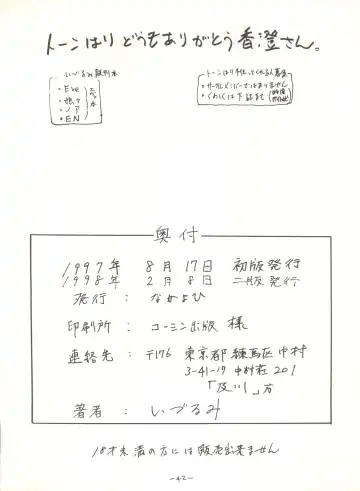 トーンはり どうもありがとう 香澄さん。
いづるみ既刊本
・Eve
・ノア
・EN
トーンはり手伝ってくれる人募集
・サークルメンバーではありません
・くわしくは下記まで
奥付
1997年 8月17日 初版発行
1998年 2月8日 二版発行
発行 : なかよひ
印刷所 : コーミン出版 様
連絡先 : 〒176 東京都練馬区中村
3-41-19 中村荘201
「及川」方
著者 : いづるみ
18才未満の方には販売出来ません
-42-